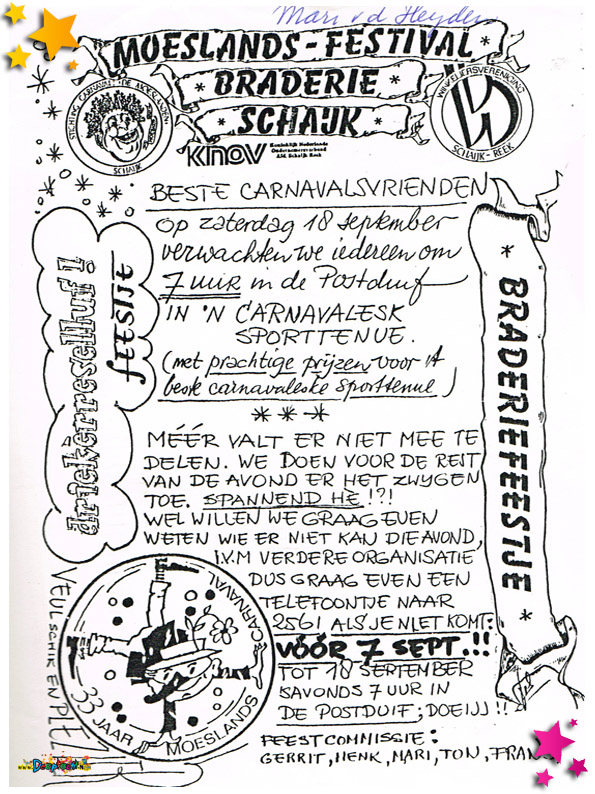 Mari v d Heyden
MOESLANDS-FESTIVAL
* BRADERIE *
* SCHAIJK *
STICHTING CARNAVAL DE MOESLANDEN
SCHAIJK
KNOV
Koninklijk Nederlands
Ondernemersverbond
Afd. Schaijk Reek
WINKELIERSVERENIGING
SCHAIJK-REEK
BESTE CARNAVALSVRIENDEN
Op zaterdag 18 september
verwachten we iedereen om
7 uur in de Postduif
IN 'N CARNAVALESK
SPORTTENUE.
(met prachtige prijzen voor 't
beste carnavaleske sporttenue)
* * *
MÉÉR VALT ER NIET MEE TE
DELEN. WE DOEN VOOR DE REST
VAN DE AVOND ER HET ZWIJGEN
TOE. SPANNEND HÈ !?!
WEL WILLEN WE GRAAG EVEN
WETEN WIE ER NIET KAN DIE AVOND,
I.V.M VERDERE ORGANISATIE
DUS GRAAG EVEN EEN
TELEFOONTJE NAAR
2561 ALS JE NIET KOMT.
VÓÓR 7 SEPT.!!
TOT 18 SEPTEMBER
SAVONDS 7 UUR IN
DE POSTDUIF; DOEIJJ !!
FEESTCOMMISSIE:
GERRIT, HENK, MARI, TON, FRANS,
driekèrresellluf!
feestje
* BRADERIEFEESTJE *
VEUL SCHIK EN
33 JAAR
MOESLANDS
CARNAVAL